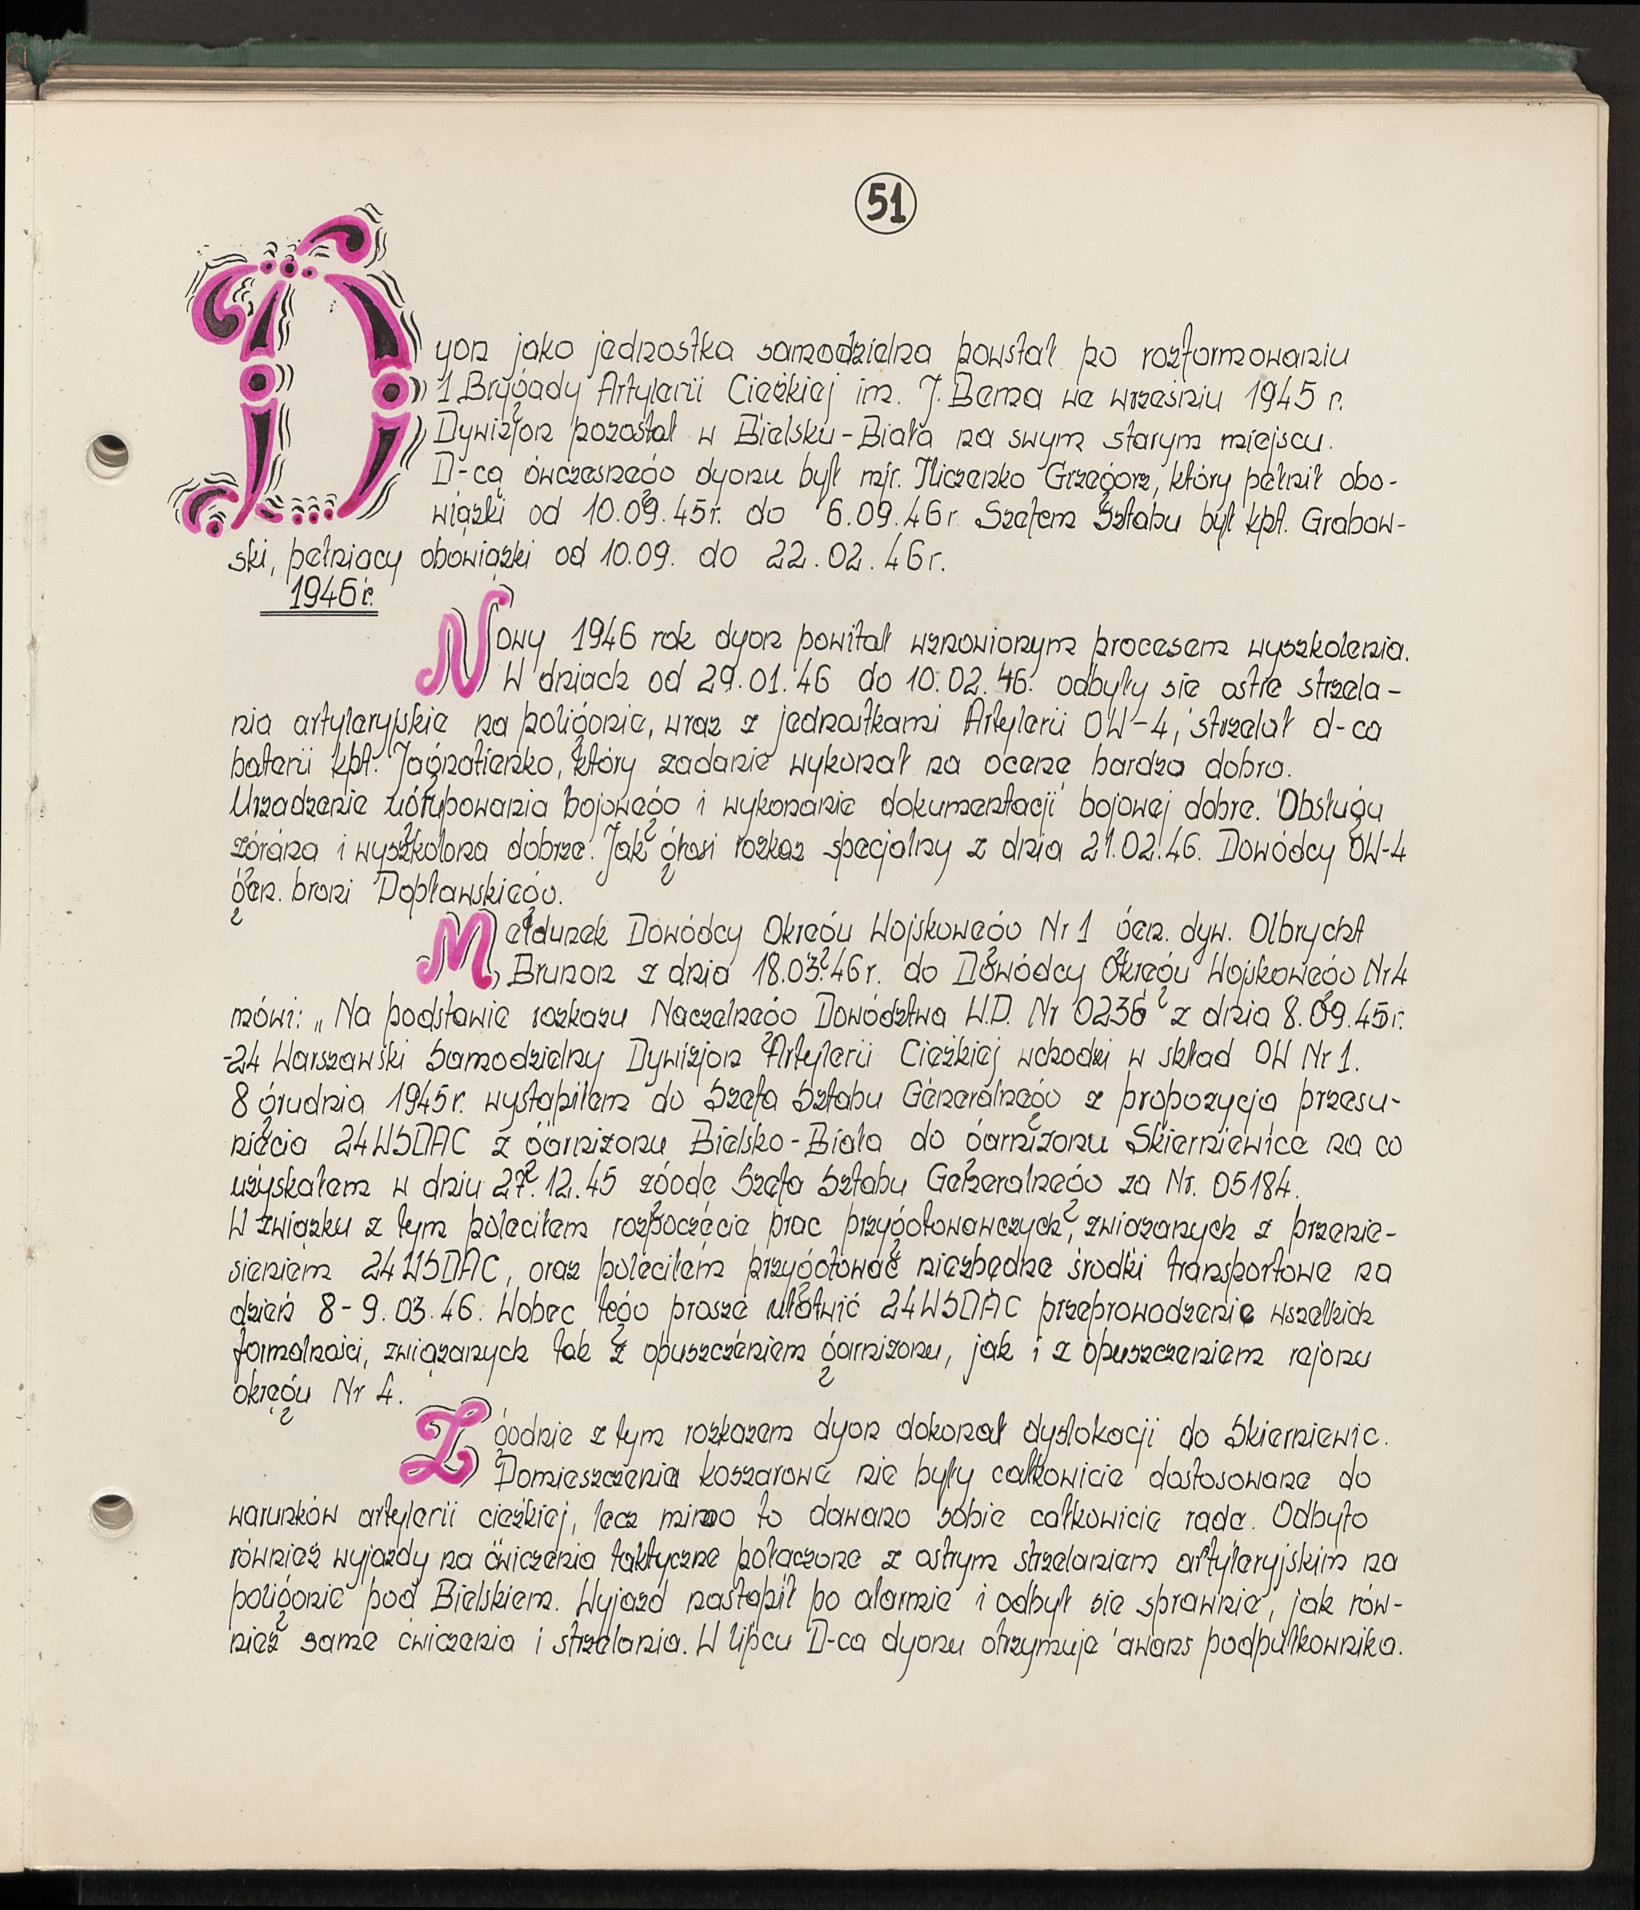 51
Dyon jako jednostka samodzielna powstał po rozformowaniu
1 Brygady Artylerii Ciężkiej im. J. Bema we wrześniu 1945 r.
Dywizjon pozostał w Bielsku-Biała na swym starym miejscu.
D-cą ówczesnego dyonu był mjr. Iliczenko Grzegorz, który pełnił obo-
wiązki od 10.09.45r. do 6.09.46r Szefem Sztabu był kpt. Grabow-
ski, pełniący obowiązki od 10.09. do 22.02.46r.
1946r.
Nowy 1946 rok dyon powitał wznowionym procesem wyszkolenia.
W dniach od 29.01.46 do 10.02.46. odbyły się ostre strzela-
nia artyleryjskie na poligonie, wraz z jednostkami Artylerii OW-4, strzelał d-ca
baterii kpt. Jagnatienko, który zadanie wykonał na ocenę bardzo dobrą.
Urządzenie ugrupowania bojowego i wykonanie dokumentacji bojowej dobre. Obsługa
zgrana i wyszkolona dobrze. Jak głosi rozkaz specjalny z dnia 21.02.46. Dowódcy OW-4
gen. broni Popławskiego.
Meldunek Dowódcy Okręgu Wojskowego Nr 1 gen. dyw. Olbrycht
Brunon z dnia 18.03.46r. do Dowódcy Okręgu Wojskowego Nr 4
mówi: „Na podstawie rozkazu Naczelnego Dowództwa W.P. Nr 0236 z dnia 8.09.45r.
-24 Warszawski Samodzielny Dywizjon Artylerii Ciężkiej wchodzi w skład OW Nr 1.
8 grudnia 1945r. wystąpiłem do Szefa Sztabu Generalnego z propozycją przesu-
nięcia 24WSDAC z garnizonu Bielsko-Biała do garnizonu Skierniewice na co
uzyskałem w dniu 27.12.45 zgodę Szefa Sztabu Generalnego za Nr. 05184.
W związku z tym poleciłem rozpoczęcie prac przygotowawczych, związanych z przenie-
sieniem 24WSDAC, oraz poleciłem przygotować niezbędne środki transportowe na
dzień 8-9.03.46. Wobec tego proszę ułatwić 24WSDAC przeprowadzenie wszelkich
formalności, związanych tak z opuszczeniem garnizonu, jak i z opuszczeniem rejonu
okręgu Nr 4.
Zgodnie z tym rozkazem dyon dokonał dyslokacji do Skierniewic.
Pomieszczenia koszarowe nie były całkowicie dostosowane do
warunków artylerii ciężkiej, lecz mimo to dawano sobie całkowicie radę. Odbyto
również wyjazdy na ćwiczenia taktyczne połączone z ostrym strzelaniem artyleryjskim na
poligonie pod Bielskiem. Wyjazd nastąpił po alarmie i odbył się sprawnie, jak rów-
nież same ćwiczenia i strzelania. W lipcu D-ca dyonu otrzymuje awans podpułkownika.